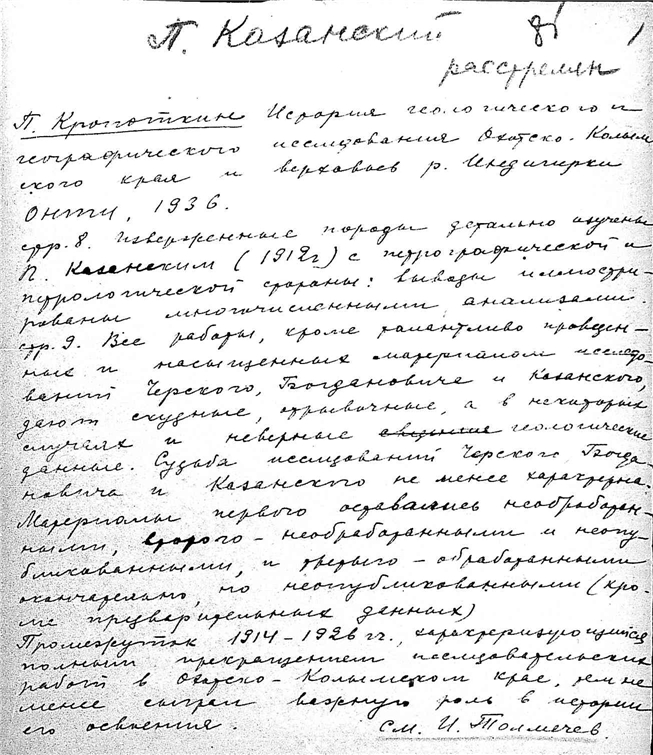 П. Казанский 1
расстрелян
П. Кропоткин История геологического и
географического исследования Охотско-Колым
ского края и верховьев р. Индигирки
ОНТИ, 1936.
стр. 8. Изверженные породы детально изучены
П. Казанским (1912г) с петрографической и
петрологической стороны: выводы иллюстри-
рованы многочисленными анализами.
стр. 9. Все работы, кроме талантливо проведен-
ных и насыщенных материалом исследо-
ваний Черского, Богдановича и Казанского,
дают скудные, отрывочные, а в некоторых
случаях и неверные геологические
данные. Судьба исследований Черского Богда-
новича и Казанского не менее характерна.
Материалы первого оставались необработан-
ными, второго - необработанными и неопу-
бликованными, и третьего - обработанными
окончательно, но неопубликованными (кро-
ме предварительных данных)
Промежуток 1914-1926 гг., характеризующийся
полным прекращением исследовательских
работ в Охотско-Колымском крае, тем не
менее сыграл важную роль в истории
его освоения. см. И. Толмачев.